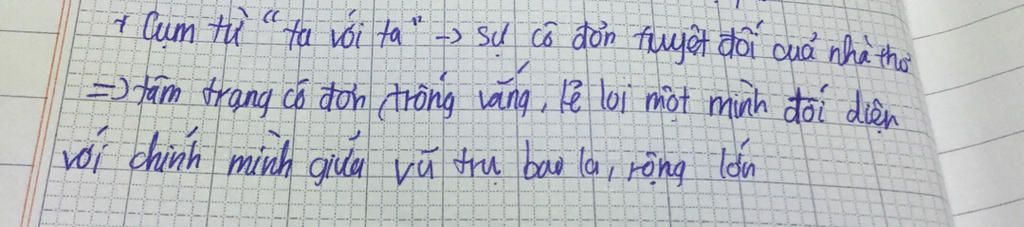 + Cụm từ "ta với ta" -> sự cô đơn tuyệt đối của nhà thơ
=> tâm trạng cô đơn, trống vắng, lẻ loi một mình đối diện
với chính mình giữa vũ trụ bao la, rộng lớn